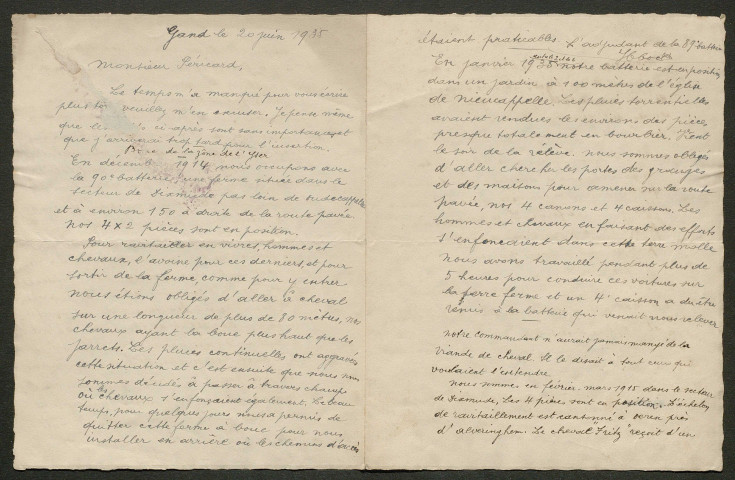 Gand le 20 juin 1935
Monsieur Péricard,
Le temps m'a manqué pour vous écrire
plus tôt veuillez m'en excuser. Je pense même
que les ci-après sont sans importance et
que j'arriverai trop tard pour l'insertion.
Boue de la zone de l'Yser
En décembre 1914 nous occupons avec
la 90e batterie une ferme située dans le
secteur de Dixmude pas loin de
et à environ 150 à droite de la route pavée
nos 4 x 2 pièces sont en position.
Pour ravitailler en vivres, hommes et
chevaux, l'avoine pour ces derniers, et pour
sortir de la ferme comme pour y entrer
nous étions obligés d'aller à cheval
sur une longueur de plus de 80 mètres, nos
chevaux ayant la boue plus haut que les
jarrets. Les pluies continuelles ont aggravé
cette situation et c'est ensuite que nous nous
sommes décidés à passer à travers champs
où les chevaux s'enfonçaient également. Le beau
temps, pour quelques jours nous a permis de
quitter cette ferme à boue pour nous
installer en arrière où les chemins d'accès
étaient praticables. L'adjudant de la 89e batterie
En janvier 1935 notre batterie est en position
dans un jardin à 100 mètres de l'église
de Nieucappelle. Les pluies torrentielles
avaient rendues les environs des pièces
presque totalement en bourbier. Vient
le soir de la relève. nous sommes obligés
d'aller chercher les portes des granges
et des maisons pour amener sur la route
pavée, nos 4 canons et 4 caissons. Les
hommes et chevaux en faisant des efforts
s'enfonçaient dans cette terre molle
nous avons travaillé pendant plus de
5 heures pour conduire ces voitures sur
la terre ferme et un 4e caisson a du être
remis à la batterie qui venait nous relever
Notre commandant n'aurait jamais mangé de la
viande de cheval. Il le disait à tout ceux qui
voulaient l'entendre.
Nous sommes en février, mars 1915 dans le secteur
de Dixmude, Les 4 pièces sont en position. L'échelon
de ravitaillement est cantonné à Oeren près
d'Alveringhem. Le cheval "Fritz" reçoit d'un